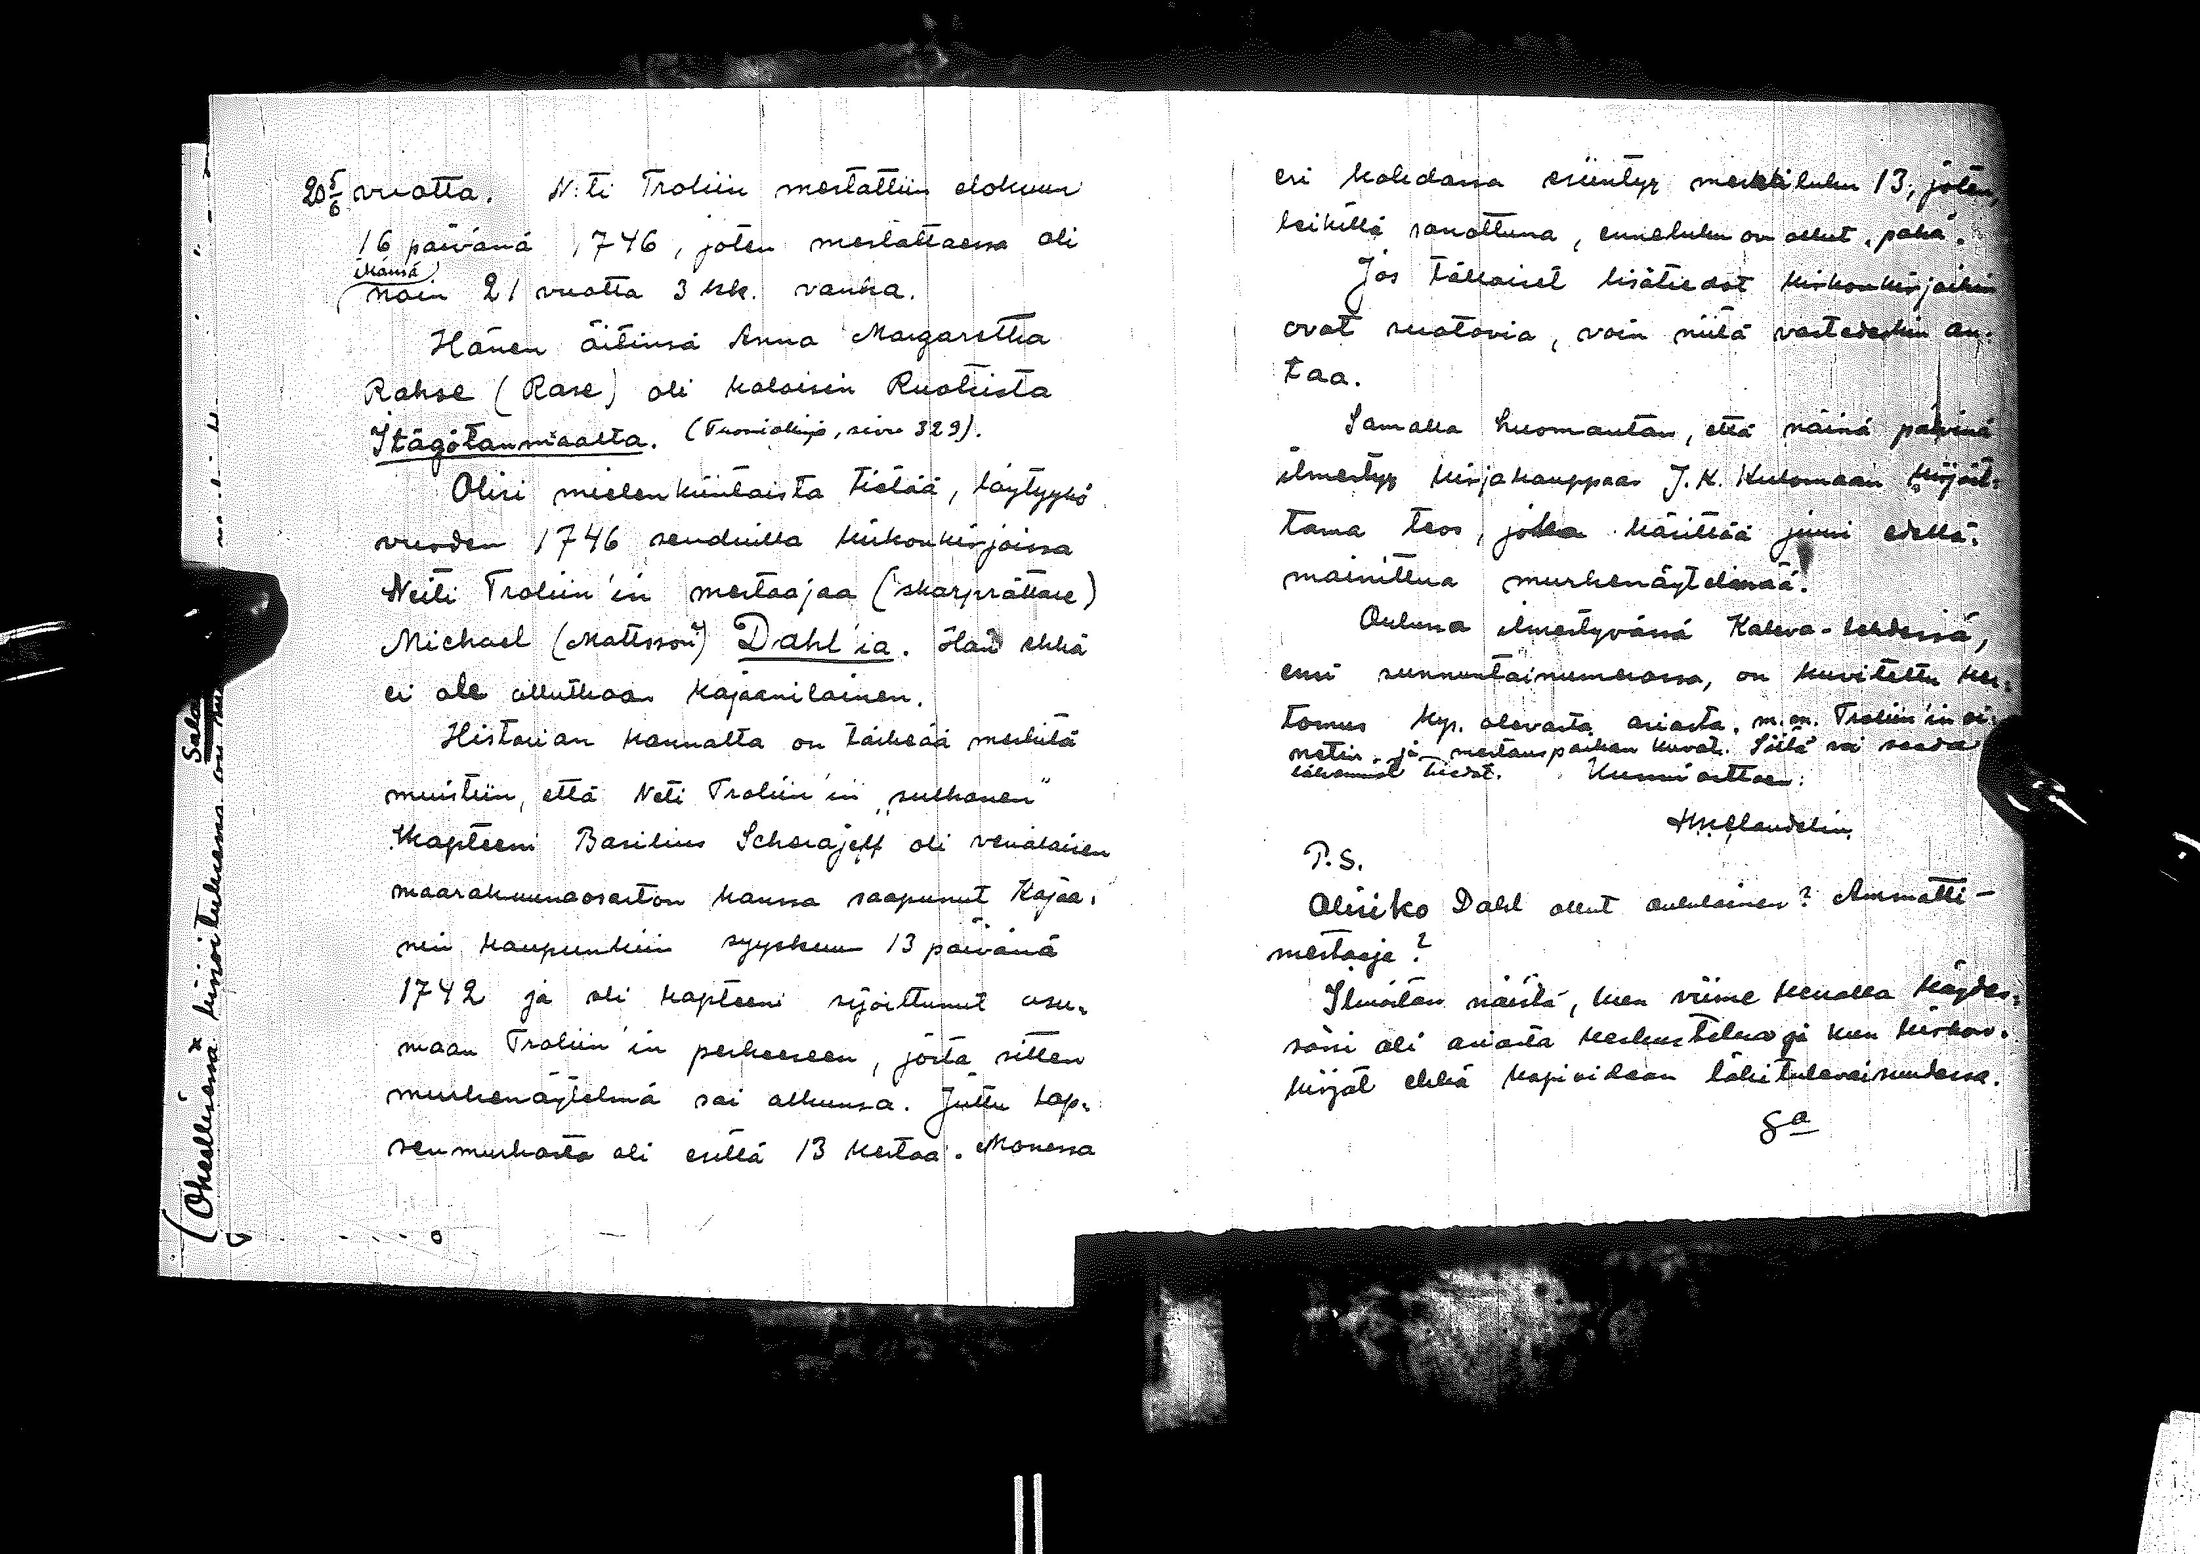 20 5/6 vuotta. N:ti Troliin mestattiin elokuun
16 päivänä 1746, joten mestattaessa oli
ikänsä
noin 21 vuotta 3 kk. vanha.
Hänen äitinsä Anna Margaretha
Rahse (Rase) oli kotoisin Ruotsista
Itägötanmaalta. (Tuomiokirja, sivu 329).
Olisi mielenkiintoista tietää, löytyykö
vuoden 1746 seuduilla kirkonkirjoissa
Neiti Troliin'in mestaajaa (skarprättare)
Michael (Mattsson) Dahl'ia. Hän ehkä
ei ole ollutkaan kajaanilainen.
Historian kannalta on tärkeää merkitä
muistiin, että Neti Troliin'in „sulhanen"
Kapteeni Basilius Scherajeff oli venäläisen
maarakuunaosaston kanssa saapunut Kajaa-
nin kaupunkiin syyskuun 13 päivänä
1742 ja oli kapteeni sijoittunut asu-
maan Troliin'in perheeseen, josta sitten
murhenäytelmä sai alkunsa. Juttu lap-
senmurhasta oli esillä 13 kertaa. Monessa
(Oheellisessa x kirjoituksessa on
eri kohdassa esiintyy merkkiluku 13, joten,
leikillä sanottuna, enneluku on ollut „paha".
Jos tällaiset lisätiedot kirkonkirjoihin
ovat suotavia, voin niitä vastedeskin an-
taa.
Samalla huomautan, että näinä päivinä
ilmestyy kirjakauppias J.K. Kulomaan kirjoit-
tama teos, joka käsittää juuri edellä-
mainittua murhenäytelmää.
Oulussa ilmestyvässä Kaleva-lehdessä,
ensi sunnuntainumerossa, on kuvitettu ker-
tomus kys. olevasta asiasta, m.m. Troliin'in
ja mestauspaikan kuvat. Siitä voi saada
lähemmät tiedot. Kunnioittaen:
P.S.
Olisiko Dahl ollut oululainen? Ammatti-
mestaaja?
Ilmoitan näistä, kun viime kerralla käydes-
säni oli asiasta keskustelua ja kun kirkon-
kirjat ehkä kopioidaan lähitulevaisuudessa.
Sa